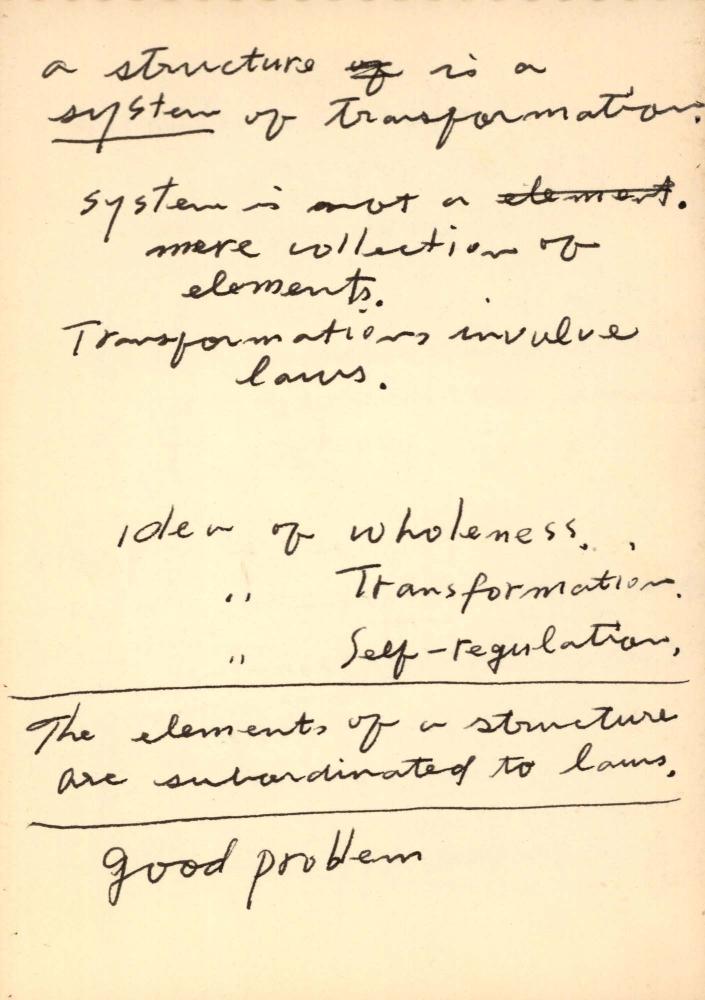 a structure of is a
system of transformation.
system is not a element.
mere collection of
elements.
Transformations involve
laws.
idea of wholeness.
" Transformation.
" Self-regulation.
The elements of a structure
are subordinated to laws.
good problem